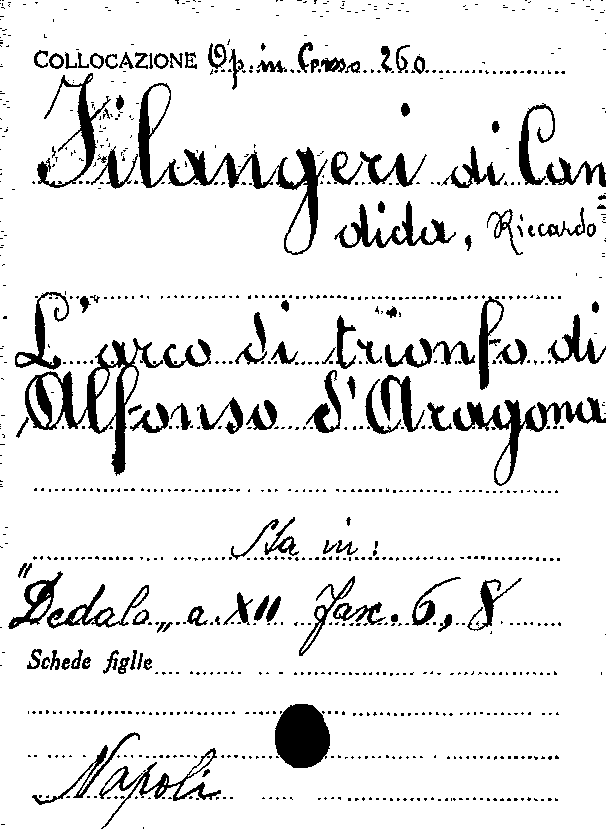 COLLOCAZIONE Op. in Corso 260
Filangeri di Can
dida, Riccardo
L'arco di trionfo di
Alfonso d'Aragona
Sta in:
"Dedalo„ a. XII Fasc. 6, 8
Schede figlie
Napoli